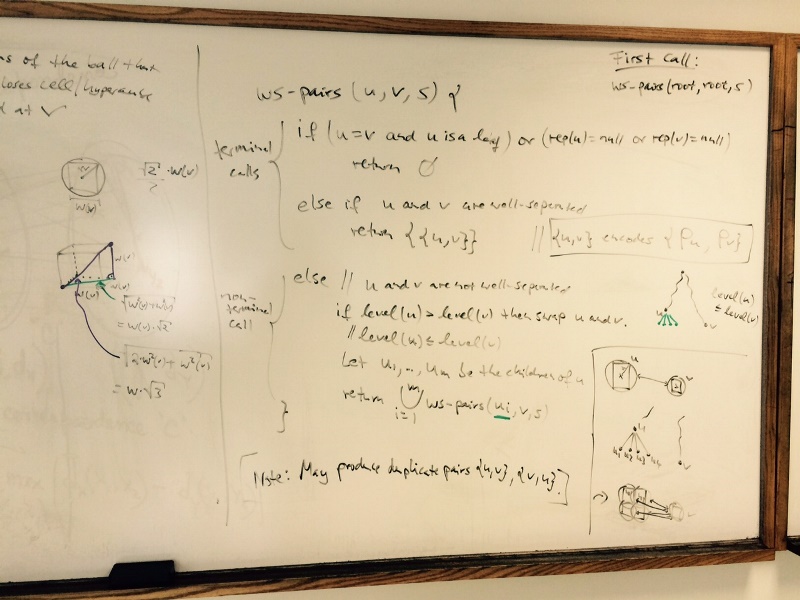 ns of the ball that
loses cell/hypercube
at v
w(v)
√2/2 · w(v)
w(v)
w(v)
w(v)
= w(v)·√2
√2·w²(v) + w²(v)
= w·√3
First call:
ws-pairs(root, root, s)
ws-pairs (u, v, s) {
terminal calls
if (u=v and u is a leaf) or (rep(u)=null or rep(v)=null)
return ∅
else if u and v are well-separated
return {{u,v}} // {u,v} encodes {Pu, Pv}
non-terminal call
else // u and v are not well-separated
if level(u) > level(v) then swap u and v.
// level(u) ≤ level(v)
Let u1, ..., um be the children of u
return ⋃ i=1 m ws-pairs(ui, v, s)
}
[Note: May produce duplicate pairs {u,v}, {v,u}.]
level(u)
≤ level(v)
u
v
u
u
u1 u2 u3 u4
v